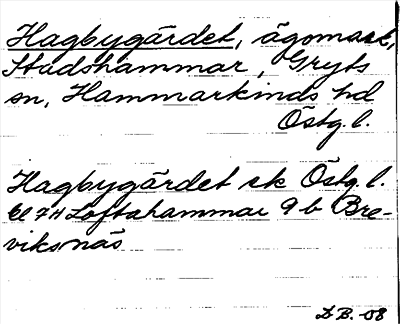 Hagbygärdet, ägomark,
Studshammar, Gryts
sn, Hammarkinds hd
Östg. l.
Hagbygärdet ek Östg. l.
bl 7H Loftahammar 9 b Bre-
viksnäs
D B. -08